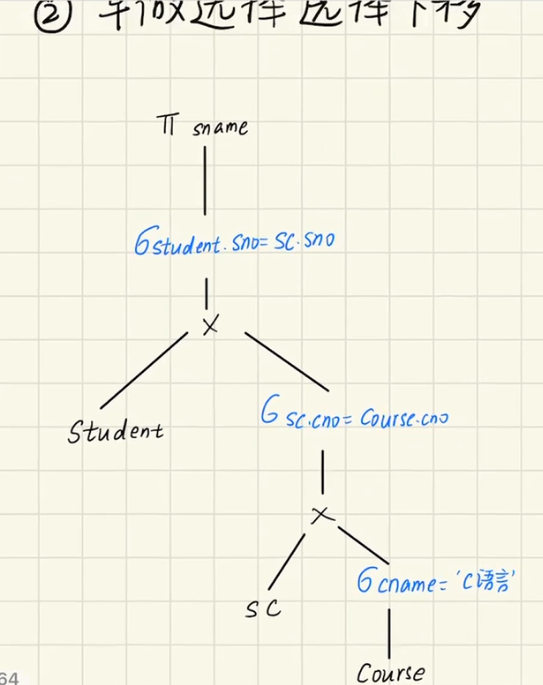 ② 早做选择 选择下移
π sname
σ student.sno = sc.sno
×
Student
σ sc.cno = Course.cno
×
SC
σ cname = 'C语言'
Course
64